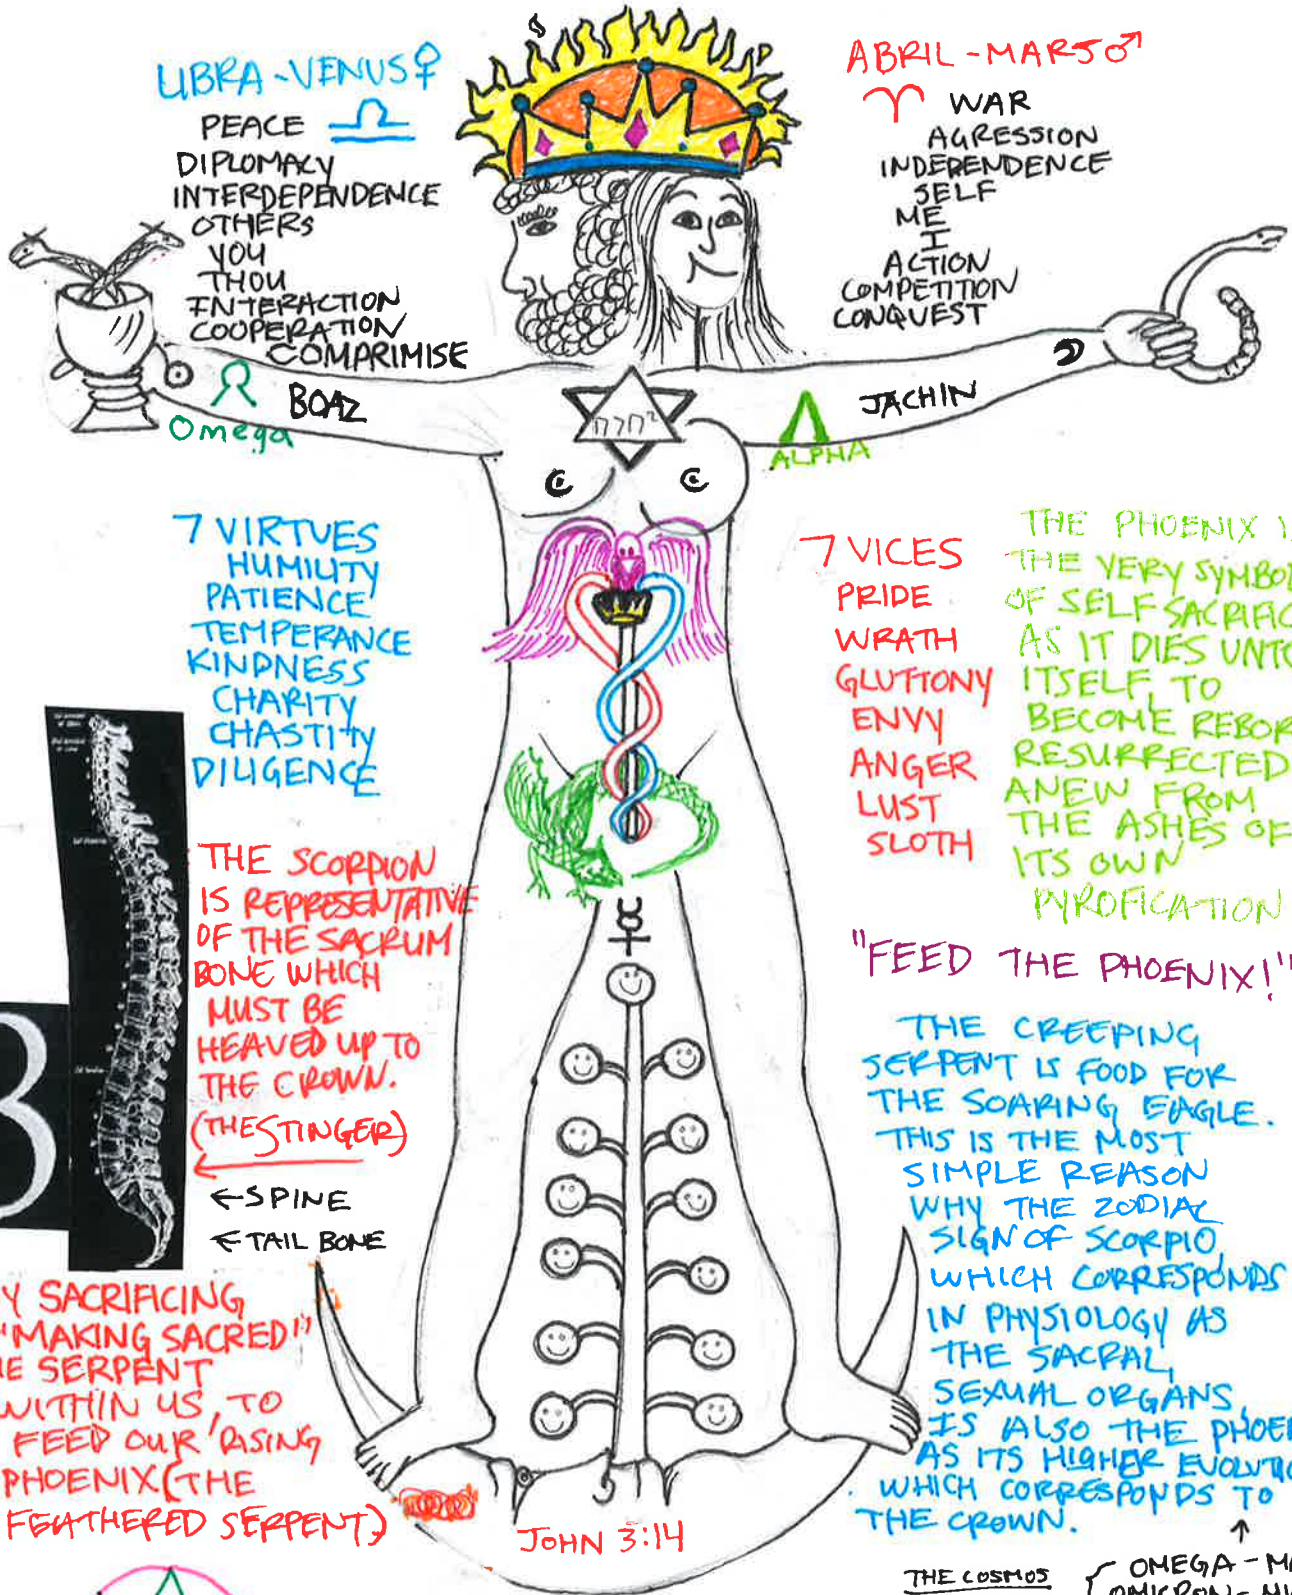 LIBRA-VENUS♀
PEACE ♎
DIPLOMACY
INTERDEPENDENCE
OTHERS
YOU
THOU
INTERACTION
COOPERATION
COMPRIMISE
ABRIL-MARS♂
♈ WAR
AGRESSION
INDEPENDENCE
SELF
ME
I
ACTION
COMPETITION
CONQUEST
Ω BOAZ
Omega
Λ JACHIN
ALPHA
7 VIRTUES
HUMILITY
PATIENCE
TEMPERANCE
KINDNESS
CHARITY
CHASTITY
DILIGENCE
7 VICES
PRIDE
WRATH
GLUTTONY
ENVY
ANGER
LUST
SLOTH
THE PHOENIX I
THE VERY SYMBO
OF SELF SACRIFIC
AS IT DIES UNTO
ITSELF, TO
BECOME REBOR
RESURRECTED
ANEW FROM
THE ASHES OF
ITS OWN
PYROFICATION
"FEED THE PHOENIX!"
THE SCORPION
IS REPRESENTATIVE
OF THE SACRUM
BONE WHICH
MUST BE
HEAVED UP TO
THE CROWN.
(THE STINGER)
←SPINE
←TAIL BONE
3
☿
THE CREEPING
SERPENT IS FOOD FOR
THE SOARING EAGLE.
THIS IS THE MOST
SIMPLE REASON
WHY THE ZODIAC
SIGN OF SCORPIO,
WHICH CORRESPONDS
IN PHYSIOLOGY AS
THE SACRAL,
SEXUAL ORGANS,
IS ALSO THE PHOE
AS ITS HIGHER EVOLUTIO
WHICH CORRESPONDS TO
THE CROWN.
Y SACRIFICING
"MAKING SACRED"
HE SERPENT
WITHIN US, TO
FEED OUR RISING
PHOENIX (THE
FEATHERED SERPENT)
JOHN 3:14
THE COSMOS
OMEGA - MA
OMICRON - MI